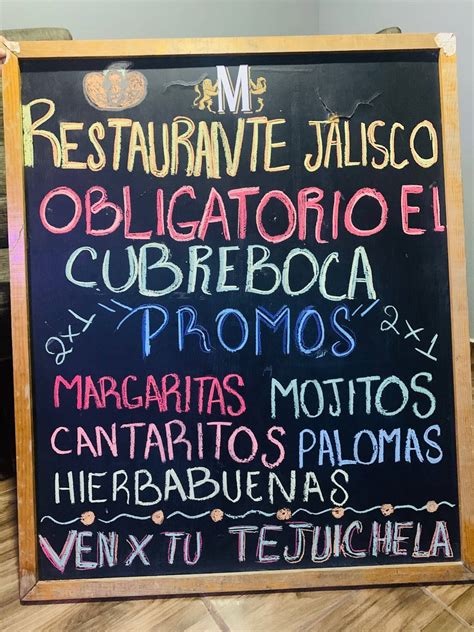 M
RESTAURANTE JALISCO
OBLIGATORIO EL
CUBREBOCA
2x1 "PROMOS" 2x1
MARGARITAS MOJITOS
CANTARITOS PALOMAS
HIERBABUENAS
VEN X TU TEJUICHELA